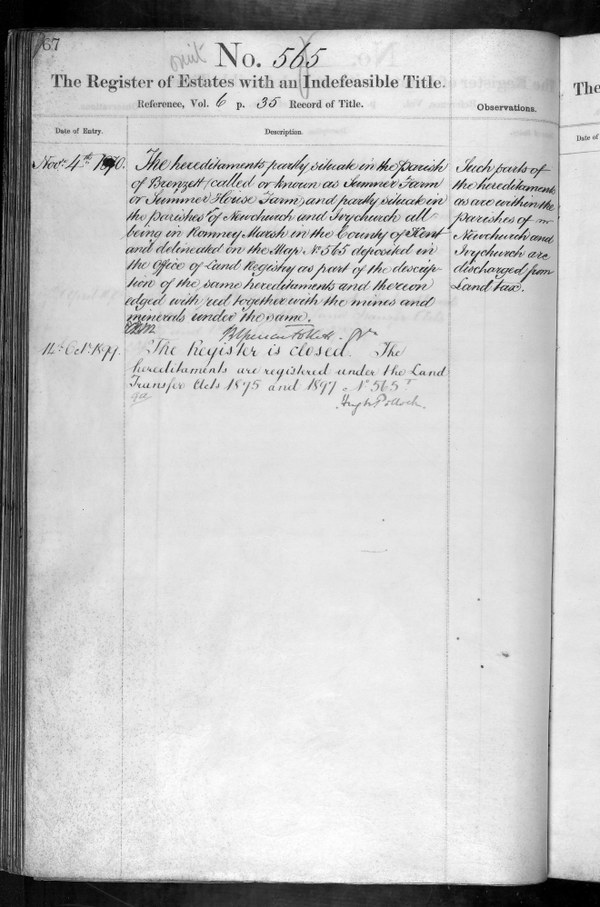 67
omit
No. 565
The Register of Estates with an Indefeasible Title.
Reference, Vol. 6 p. 35 Record of Title.
Observations.
Date of Entry.
Description.
Novr. 4th 1870.
The hereditaments partly situate in the Parish
of Brenzett (called or known as Summer Farm
or Summer House Farm) and partly situate in
the Parishes of Newchurch and Ivychurch all
being in Romney Marsh in the County of Kent
and delineated on the Map No. 565 deposited in
the Office of Land Registry as part of the descrip-
tion of the same hereditaments and thereon
edged with red together with the mines and
minerals under the same.
Brent Spencer Follett
Such parts of
the hereditaments
as are within the
parishes of
Newchurch and
Ivychurch are
discharged from
Land tax.
14 Oct. 1899.
The Register is closed. The
hereditaments are registered under the Land
Transfer Acts 1875 and 1897 No. 565
Hugh Pollock.
The
Date of